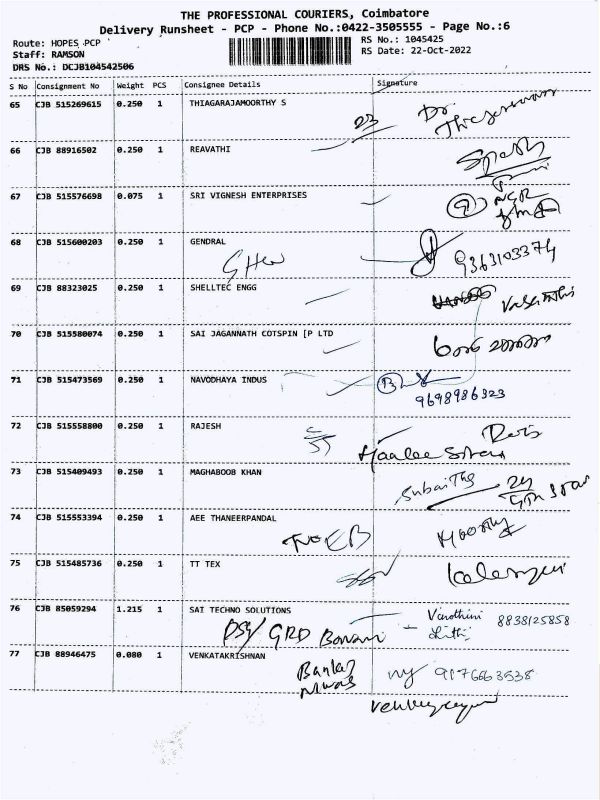 THE PROFESSIONAL COURIERS, Coimbatore
Delivery Runsheet - PCP - Phone No.:0422-3505555 - Page No.:6
Route: HOPES PCP
RS No.: 1045425
Staff: RAMSON
RS Date: 22-Oct-2022
DRS No.: DCJB104542506
S No Consignment No Weight PCS Consignee Details Signature
65 CJB 515269615 0.250 1 THIAGARAJAMOORTHY S
23 Dr.
66 CJB 88916502 0.250 1 REAVATHI
67 CJB 515576698 0.075 1 SRI VIGNESH ENTERPRISES
68 CJB 515600203 0.250 1 GENDRAL
9363103374
69 CJB 88323025 0.250 1 SHELLTEC ENGG
70 CJB 515580074 0.250 1 SAI JAGANNATH COTSPIN [P LTD
71 CJB 515473569 0.250 1 NAVODHAYA INDUS
9698986323
72 CJB 515558800 0.250 1 RAJESH
73 CJB 515409493 0.250 1 MAGHABOOB KHAN
74 CJB 515553394 0.250 1 AEE THANEERPANDAL
75 CJB 515485736 0.250 1 TT TEX
76 CJB 85059294 1.215 1 SAI TECHNO SOLUTIONS
8838125858
77 CJB 88946475 0.080 1 VENKATAKRISHNAN
9176663538